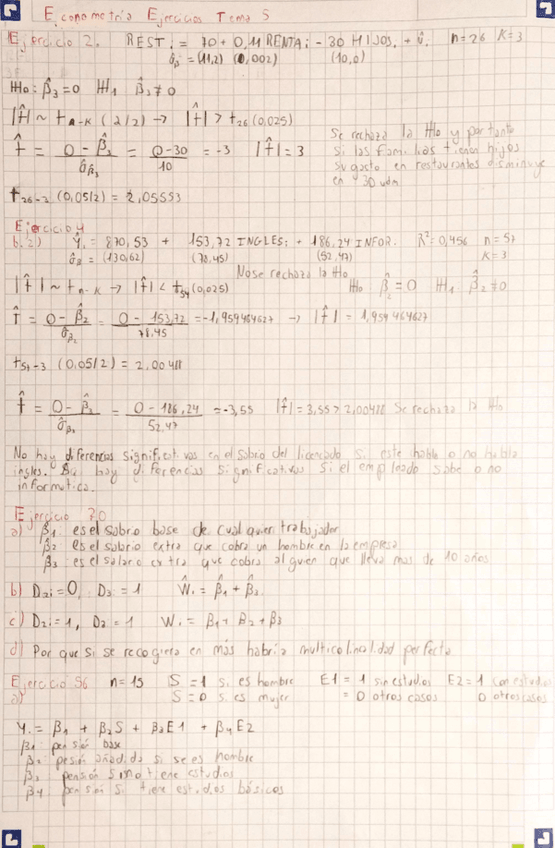 Econometría Ejercicios Tema 5
Ejercicio 2. RESTi = 70 + 0,11 RENTAi - 30 HIJOSi + ûi n=26 K=3
σ̂β̂ = (11,2) (0,002) (10,0)
H0: β̂3=0 H1 β̂3≠0
|t̂| ~ tn-k (α/2) → |t̂| > t26 (0,025)
t̂ = 0-β̂2 / σ̂β̂3 = 0-30 / 10 = -3 |t̂| = 3
Se rechaza la H0 y por tanto
si las familias tienen hijos
su gasto en restaurantes disminuye
en 30 udm
t26-2 (0,05/2) = 2,05553
Ejercicio 4
b.2) Ŷi = 870,53 + 153,72 INGLESi + 186,24 INFORi R²=0,456 n=57
σ̂β = (130,62) (78,45) (52,47) K=3
No se rechaza la H0
|t̂| ~ tn-k → |t̂| < t54 (0,025) H0 β̂2=0 H1 β̂2≠0
t̂ = 0-β̂2 / σ̂β2 = 0-153,72 / 78,45 = -1,959464627 → |t̂| = 1,959464627
t57-3 (0,05/2) = 2,00488
t̂ = 0-β̂3 / σ̂β3 = 0-186,24 / 52,47 = -3,55 |t̂| = 3,55 > 2,00488 Se rechaza la H0
No hay diferencias significativas en el salario del licenciado si este habla o no habla
ingles. hay diferencias significativas si el empleado sabe o no
informatica.
Ejercicio 20
a) β̂1: es el salario base de cualquier trabajador
β̂2 es el salario extra que cobra un hombre en la empresa
β̂3: es el salario extra que cobra alguien que lleva mas de 10 años
b) D2i=0, D3=1 Ŵi = β̂1 + β̂3
c) D2i=1, D3=1 Wi = β1 + β2 + β3
d) Por que si se recogiera en más habria multicolinalidad perfecta
Ejercicio 56 n=15 S=1 si es hombre E1=1 sin estudios E2=1 con estudios
a) S=0 si es mujer =0 otros casos 0 otros casos
Yi = β1 + β2S + β3E1 + β4E2
β1: pensión base
β2 pesión añadida si se es hombre
β3 pensión si no tiene estudios
β4 pensión si tiene estudios básicos